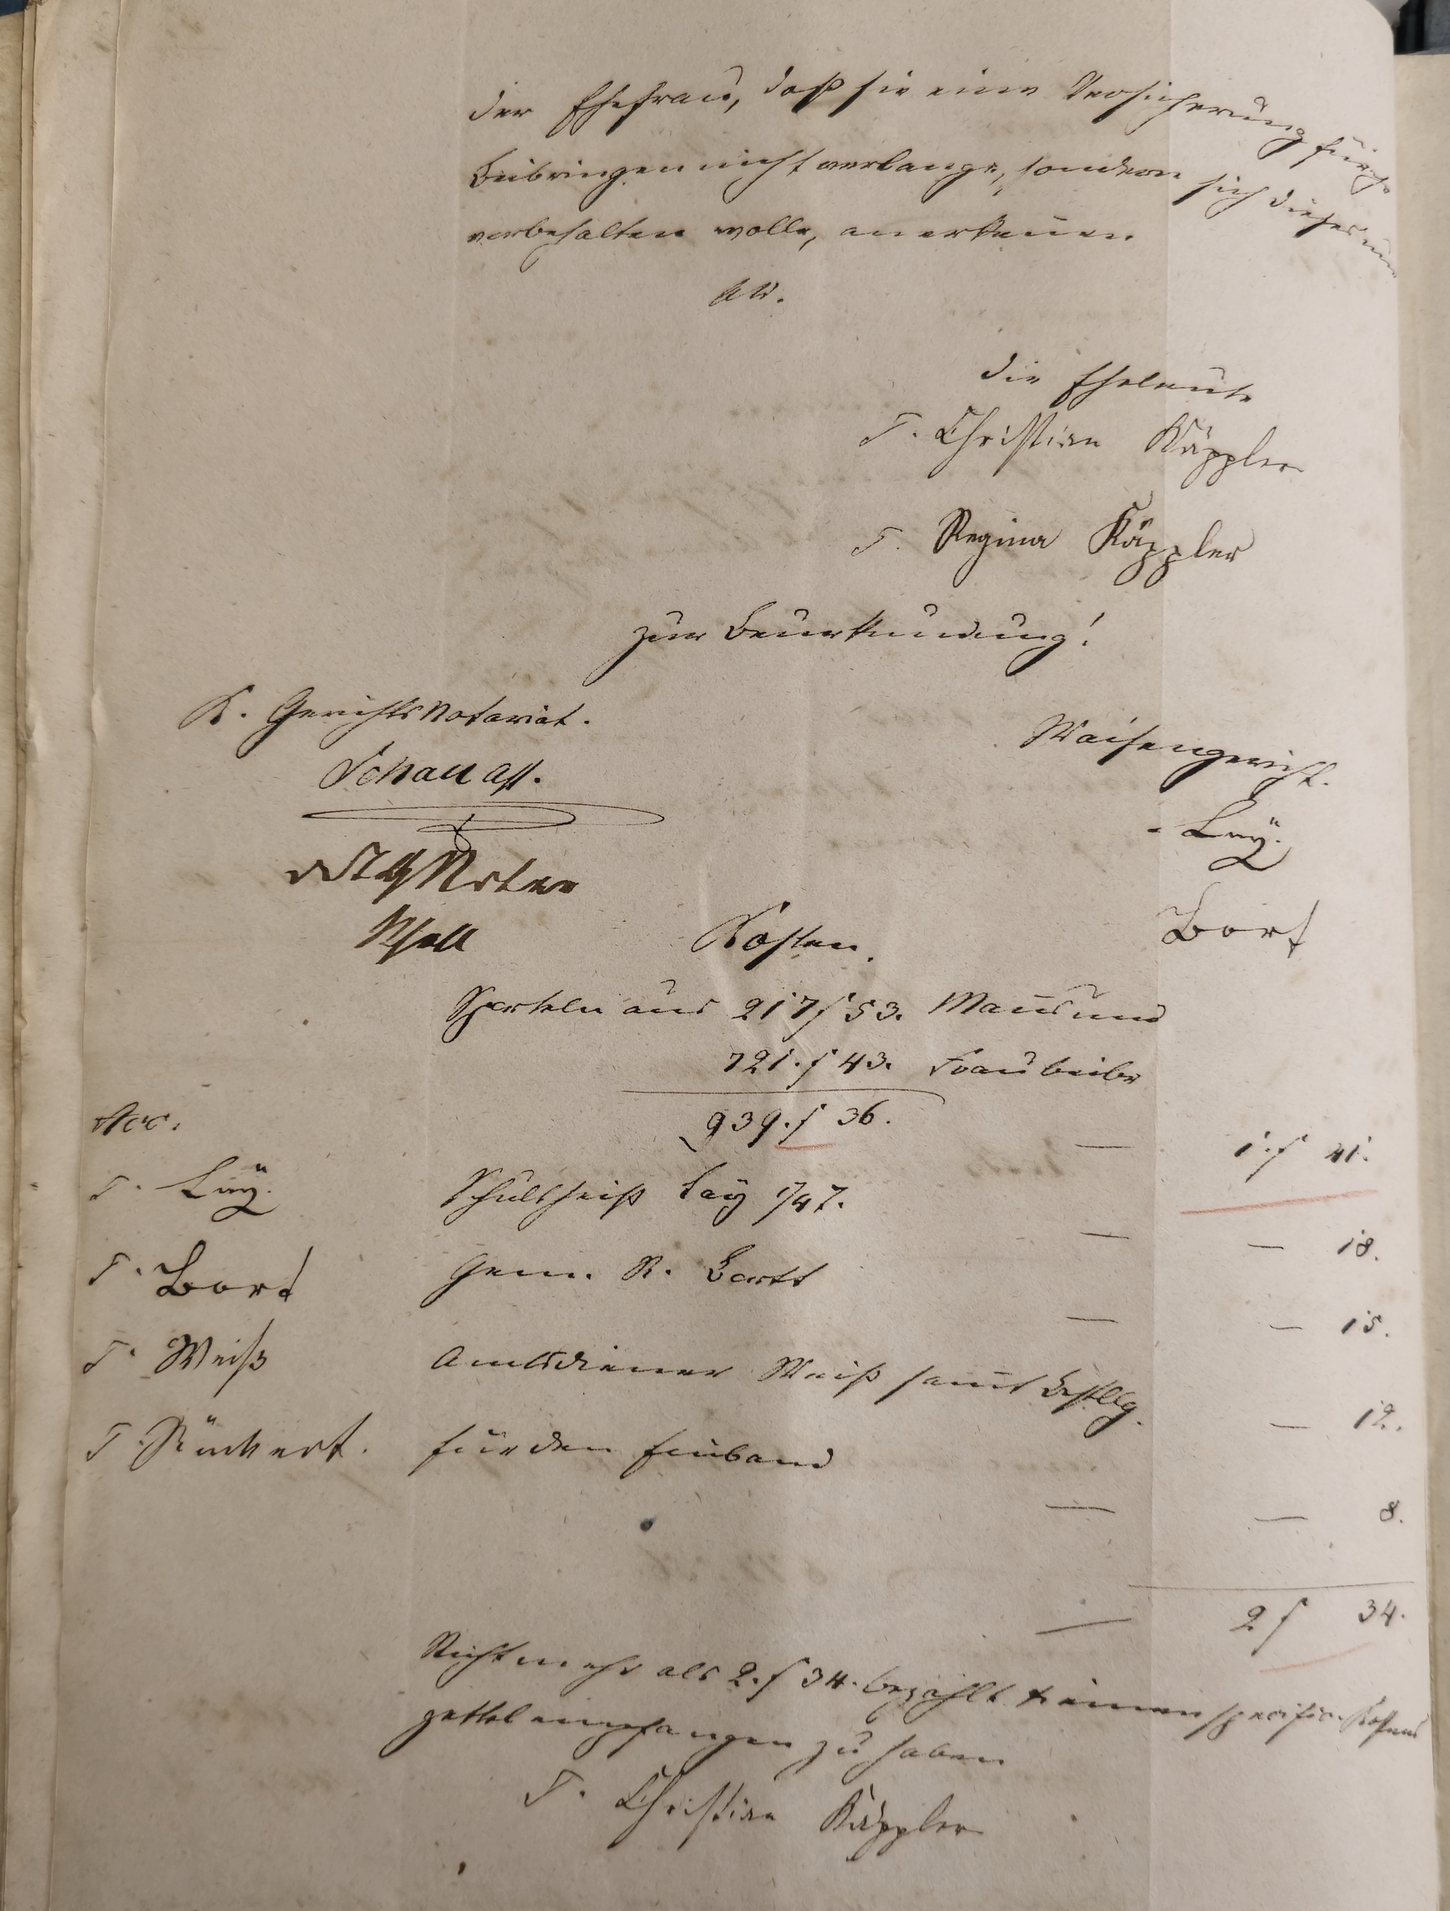 der Ehefrau, daß sie eine Versicherung fürihr
Beibringen nicht verlange, sondern sich dieses nur
vorbehalten wolle, anerkennen
die Eheleute
T. Christian Käppler
T. Regina Käppler
zur Beurkundung!
K. Gerichts Notariat.
Schall Ass.
Waisengericht.
Laÿ.
Bort
Kosten.
Sporteln aus 217 f 53. Manns und
721. f 43. Frau beibr
939. f 36. — 1. f 41.
Acc.
T. Laÿ. Schultheiß Laÿ 1/47. — — 18.
T. Bort Gem. R. Bortt — — 15.
T. Weiß Amtsdiener Weiß samt Bestllg. — 12.
T. Rückert. für den Einband — — 8.
— 2 f 34.
Nicht mehr als 2. f 34. bezahlt & einen specific. Kostens
zettel empfangen zu haben
T. Christian Käppler